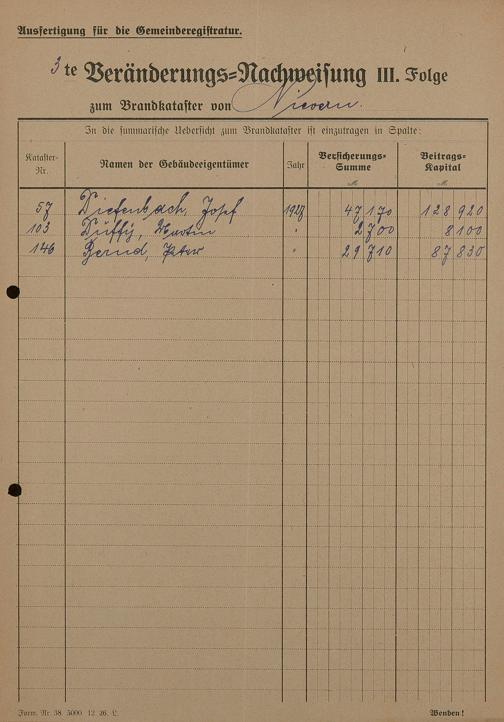 Ausfertigung für die Gemeinderegistratur.
3te Veränderungs=Nachweisung III. Folge
zum Brandkataster von Nievern.
In die summarische Uebersicht zum Brandkataster ist einzutragen in Spalte:
Kataster-Nr. Namen der Gebäudeeigentümer Jahr Versicherungs-Summe Beitrags-Kapital
M. M.
57 Diefenbach, Josef 1927 47170 128920
103 Duffy, Martin " 2700 8100
146 Bernd, Peter " 29710 87830
Form. Nr. 38. 5000. 12. 26. L.
Wenden!